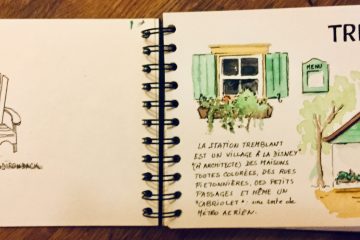 ADIRONDACK
TRE
MENU
LA STATION TREMBLANT
EST UN VILLAGE À LA DISNEY"
(D'ARCHITECTE) DES MAISONS
TOUTES COLORÉES, DES RUES
PIÉTONNIÈRES, DES PETITS
PASSAGES ET MÊME UN
"CABRIOLET": une sorte de
MÉTRO AÉRIEN.